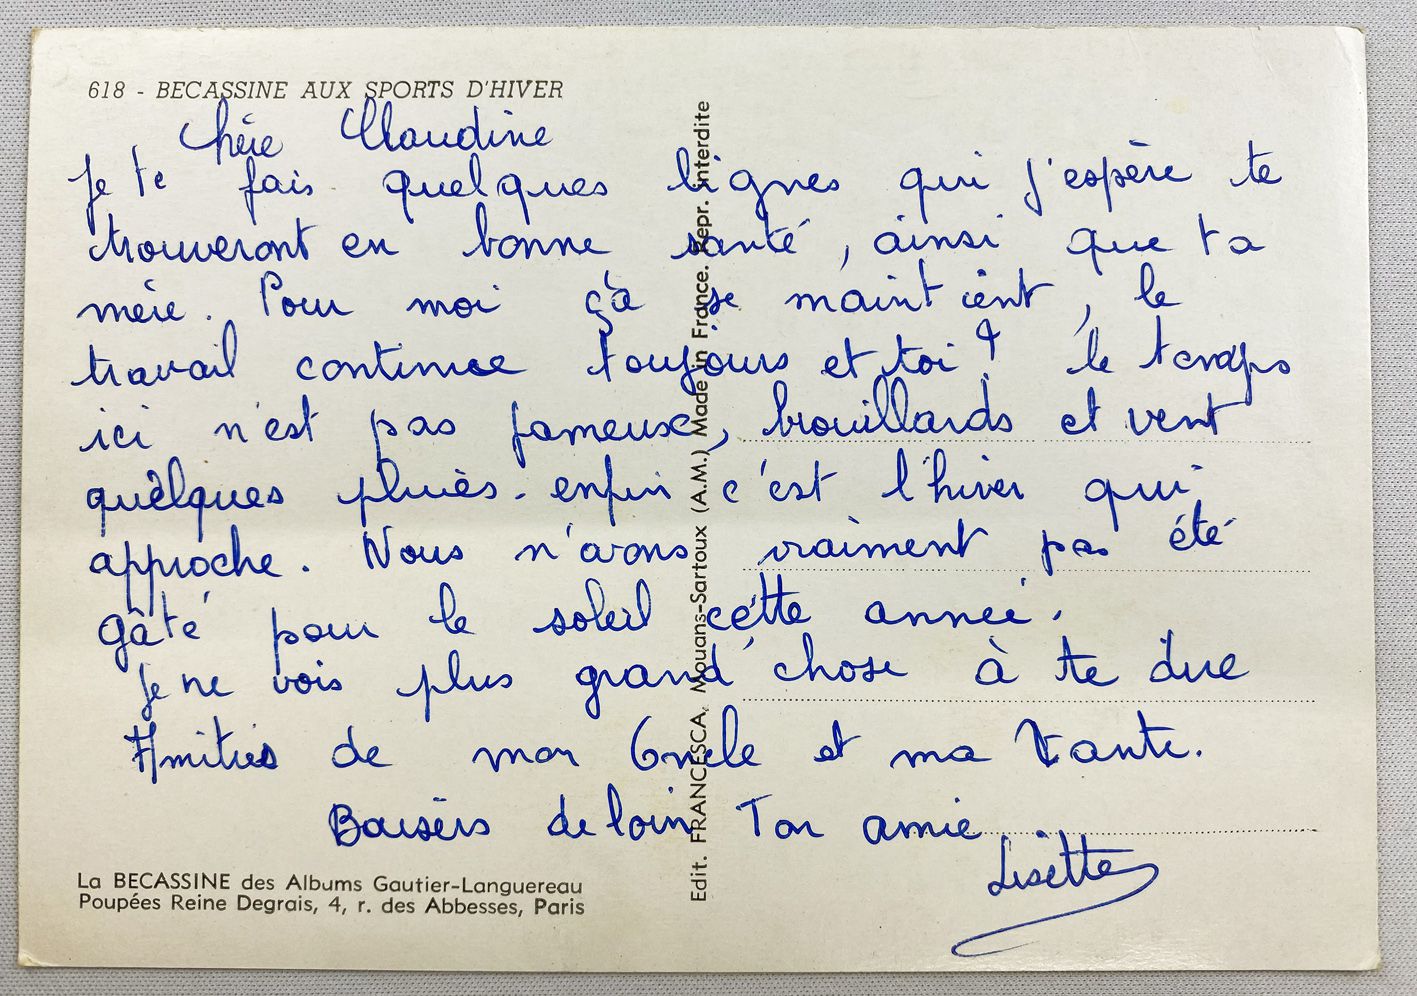 618 - BECASSINE AUX SPORTS D'HIVER
Chère Claudine
Je te fais quelques lignes qui j'espère te
trouveront en bonne santé, ainsi que ta
mère. Pour moi çà se maintient, le
travail continue toujours et toi ? le temps
ici n'est pas fameux, brouillards et vent
quèlques pluies. enfin c'est l'hiver qui
approche. Nous n'avons vraiment pas été
gâté pour le soleil cette année.
Je ne vois plus grand chose à te dire
Amitiés de mon Oncle et ma Tante.
Baisers de loin Ton amie
Lisette
La BECASSINE des Albums Gautier-Languereau
Poupées Reine Degrais, 4, r. des Abbesses, Paris
Edit. FRANCESCA, Mouans-Sartoux (A.M.) Made in France. Repr. interdite